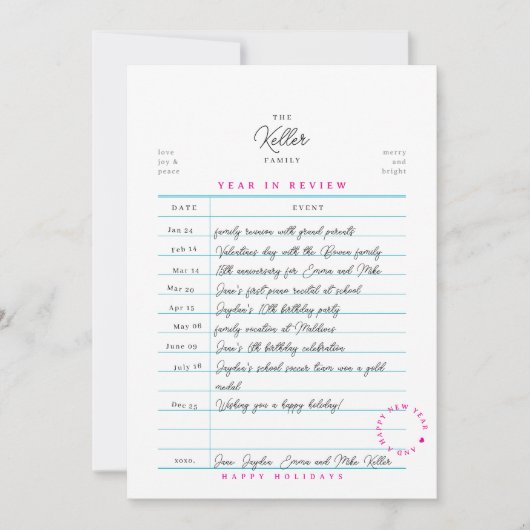 THE
Keller
FAMILY
love
joy &
peace
merry
and
bright
YEAR IN REVIEW
DATE EVENT
Jan 24 family reunion with grand parents
Feb 14 Valentines day with the Bowen family
Mar 14 15th anniversary for Emma and Mike
Mar 20 Jane's first piano recital at school
Apr 15 Jayden's 10th birthday party
May 06 family vacation at Maldives
June 09 Jane's 6th birthday celebration
July 16 Jayden's school soccer team won a gold
medal
Dec 25 Wishing you a happy holiday!
AND A HAPPY NEW YEAR
xoxo, Jane Jayden Emma and Mike Keller
HAPPY HOLIDAYS